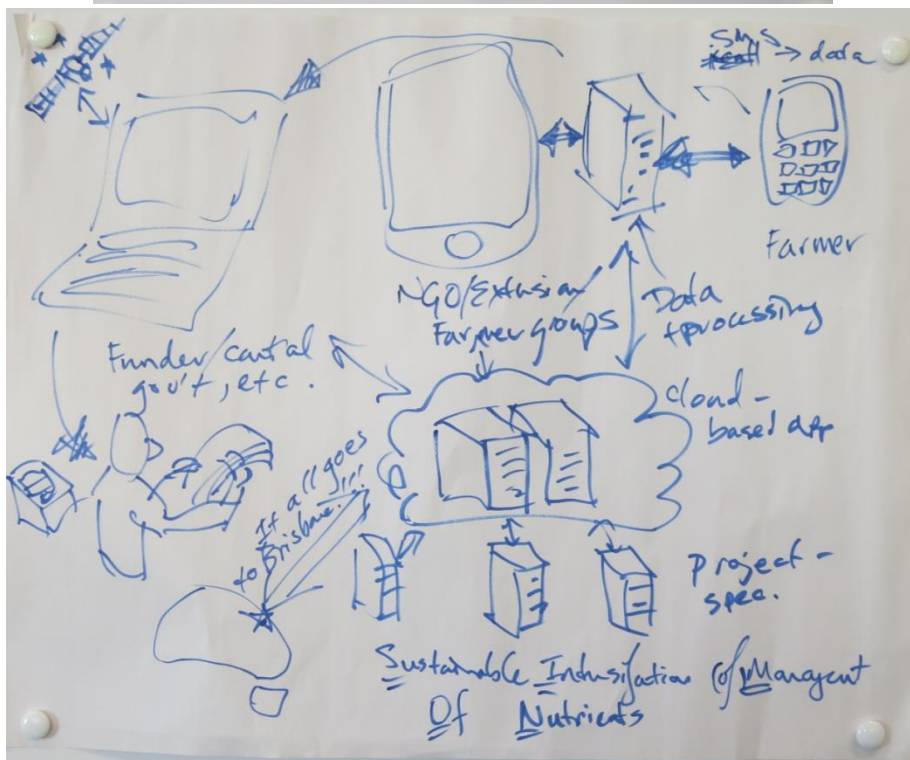 SMS → data
Farmer
NGO/Extension
Farmer groups
Data
+processing
Funder/central
gov't, etc.
cloud-
based app
It all goes
to Brisbane!!!
Project-
spec.
Sustainable Intensification (of) Managemt
Of Nutrients